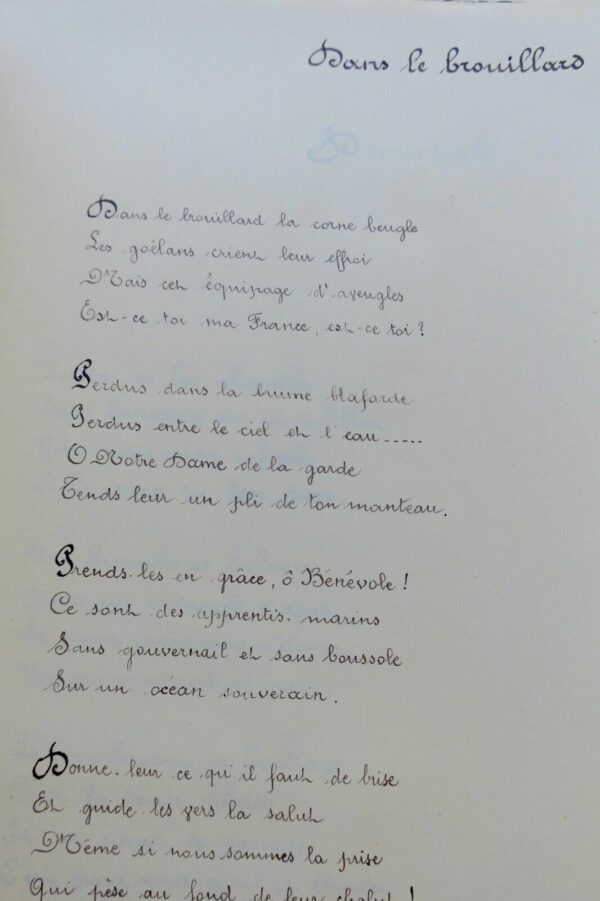 Dans le brouillard
Dans le brouillard la corne beugle
Les goëlans crient leur effroi
Mais cet équipage d'aveugles
Est-ce toi ma France, est-ce toi ?
Perdus dans la brume blafarde
Perdus entre le ciel et l'eau.....
O Notre Dame de la garde
Tends leur un pli de ton manteau.
Prends-les en grâce, ô Bénévole !
Ce sont des apprentis-marins
Sans gouvernail et sans boussole
Sur un océan souverain.
Donne-leur ce qu'il faut de brise
Et guide les vers la salut
Même si nous sommes la prise
Qui pèse au fond de leur chalut !